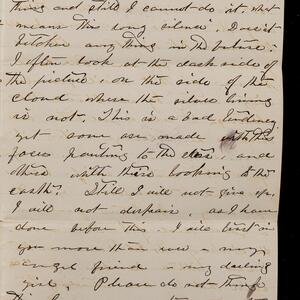 thing and still I cannot do it, what
means this long silence. Does it
betoken any thing in the future?
I often look at the dark side of
the picture, on the side of the
cloud where the silver lining
is not. This is a bad tendency
yet some are made with their
faces pointing to the and
others with their looking to the
earth. Still I will not give up,
I will not despair, as I have
done before this. I will trust in
you more than ever my
angel friend my darling
girl. Please do not things